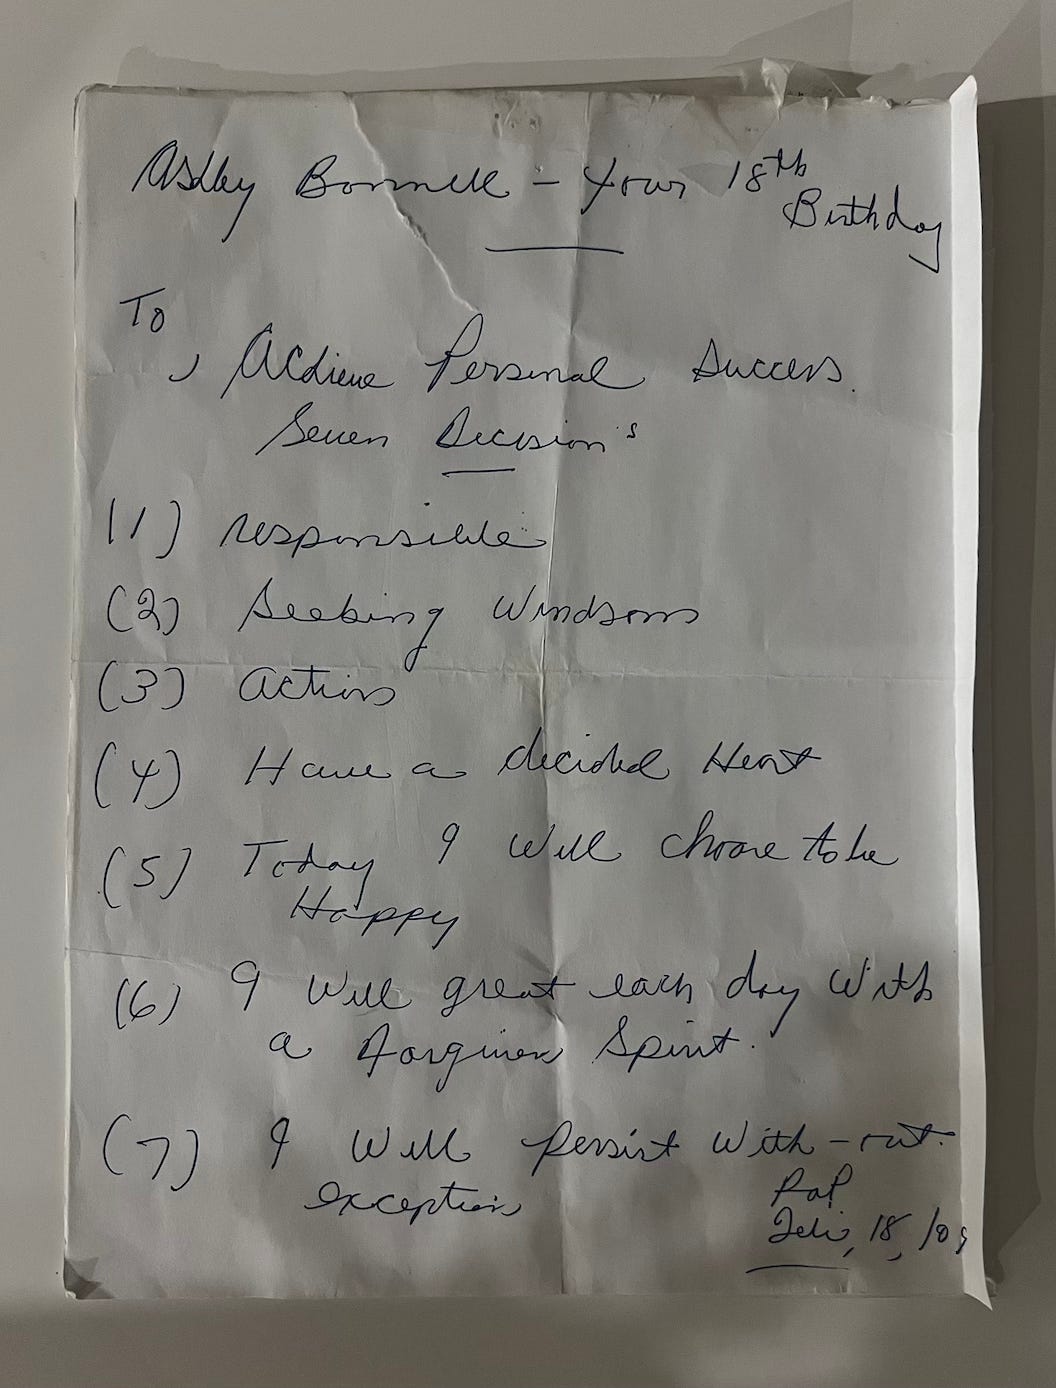 Ashley Bonnell - Your 18th
Birthday
To
Achieve Personal Success.
Seven Decision's
(1) responsible
(2) Seeking Windsom
(3) action
(4) Have a decided Heart
(5) Today I Will choose to be
Happy
(6) I Will great each day With
a forgiven Spirit.
(7) I Will Persist With-out
exception
PoP
Feb, 18, /09